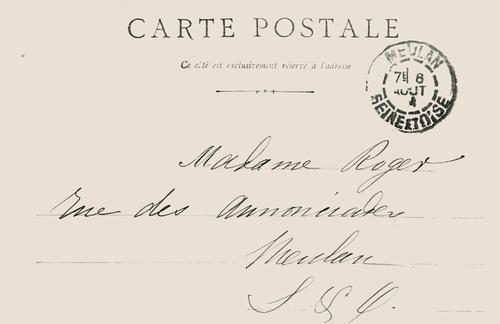 CARTE POSTALE
Ce côté est exclusivement réservé à l'adresse
MEULAN
7E 6
AOUT
4
SEINE ET OISE
Madame Roger
Rue des Annonciades
Meulan
S & O.